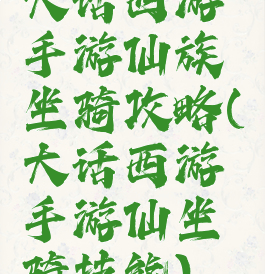 大话西游
手游仙族
坐骑攻略(
大话西游
手游仙坐
骑技能)